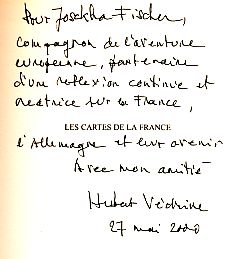 Pour Joschka Fischer,
compagnon de l'aventure
européenne, partenaire
d'une réflexion continue et
créatrice sur la France,
LES CARTES DE LA FRANCE
l'Allemagne et leur avenir
Avec mon amitié
Hubert Védrine
27 mai 2000